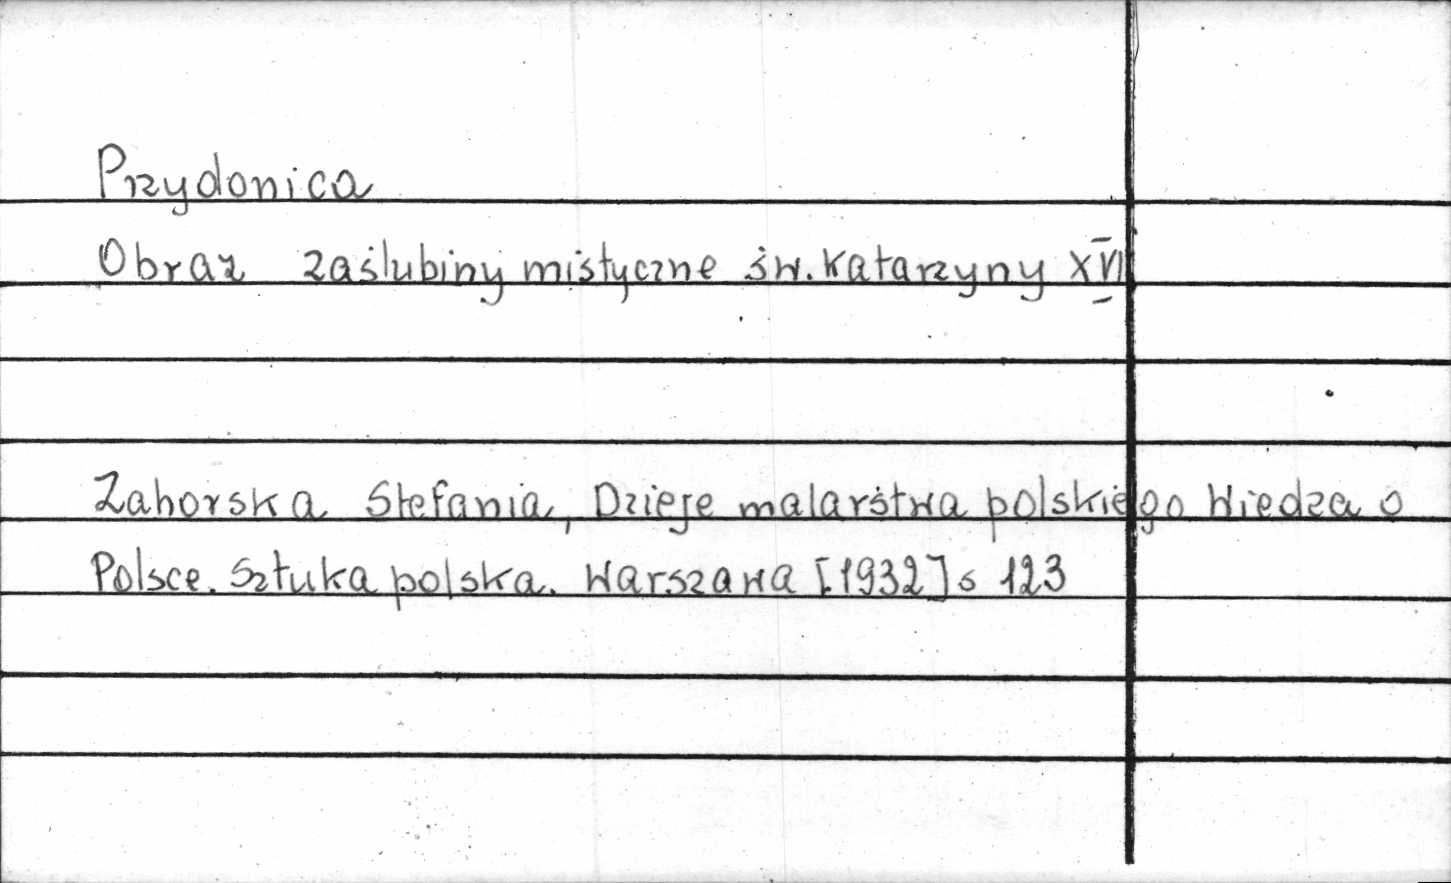 Przydonica
Obraz zaślubiny mistyczne św. Katarzyny XVI
Zahorska Stefania, Dzieje malarstwa polskiego Wiedza o
Polsce. Sztuka polska. Warszawa [1932] s 123